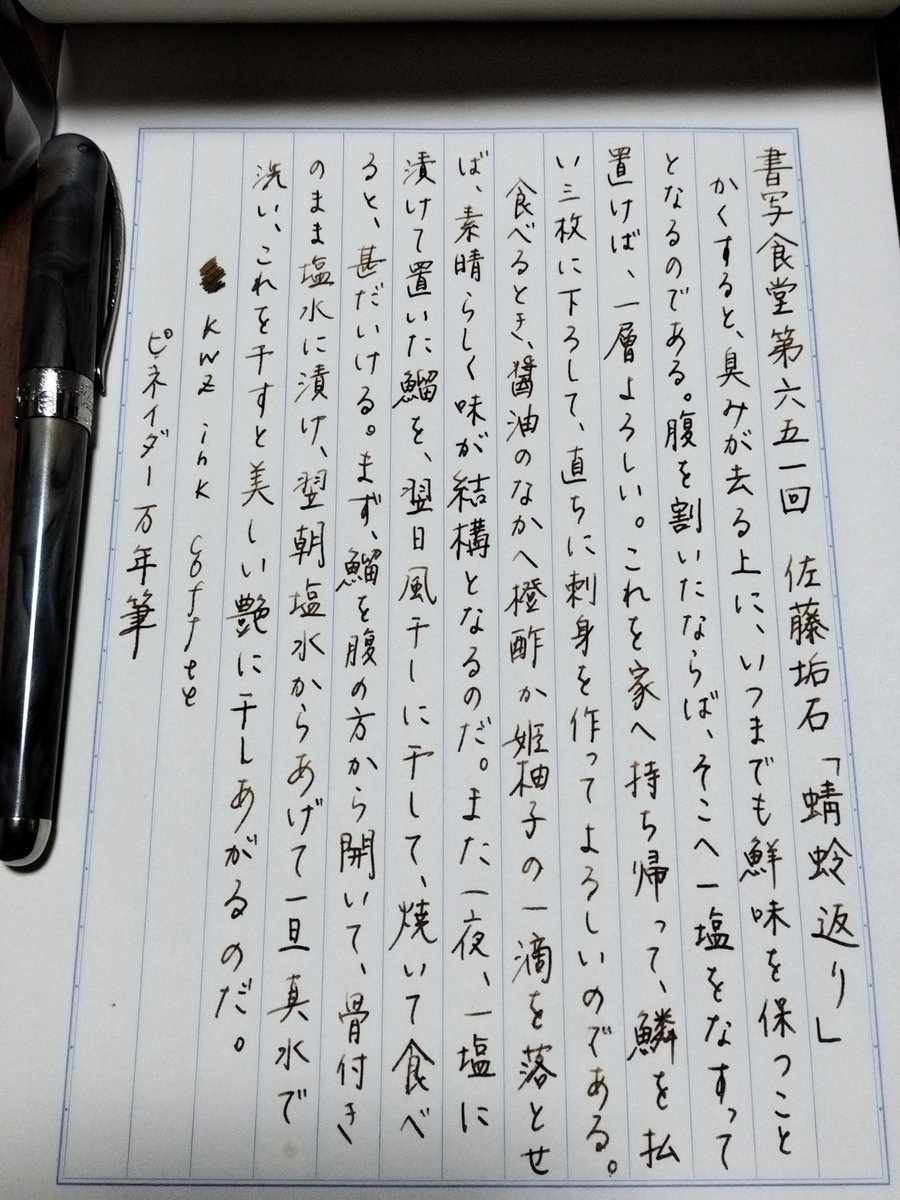 書写食堂第六五一回　佐藤垢石「蜻蛉返り」
かくすると、臭みが去る上に、いつまでも鮮味を保つこと
となるのである。腹を割いたならば、そこへ一塩をなすって
置けば、一層よろしい。これを家へ持ち帰って、鱗を払
い三枚に下ろして、直ちに刺身を作ってよろしいのである。
食べるとき、醤油のなかへ橙酢か姫柚子の一滴を落とせ
ば、素晴らしく味が結構となるのだ。また一夜、一塩に
漬けて置いた鰡を、翌日風干しに干して、焼いて食べ
ると、甚だいける。まず、鰡を腹の方から開いて、骨付き
のまま塩水に漬け、翌朝塩水からあげて一旦真水で
洗い、これを干すと美しい艶に干しあがるのだ。
kwz ink coffee
ピネイダー万年筆